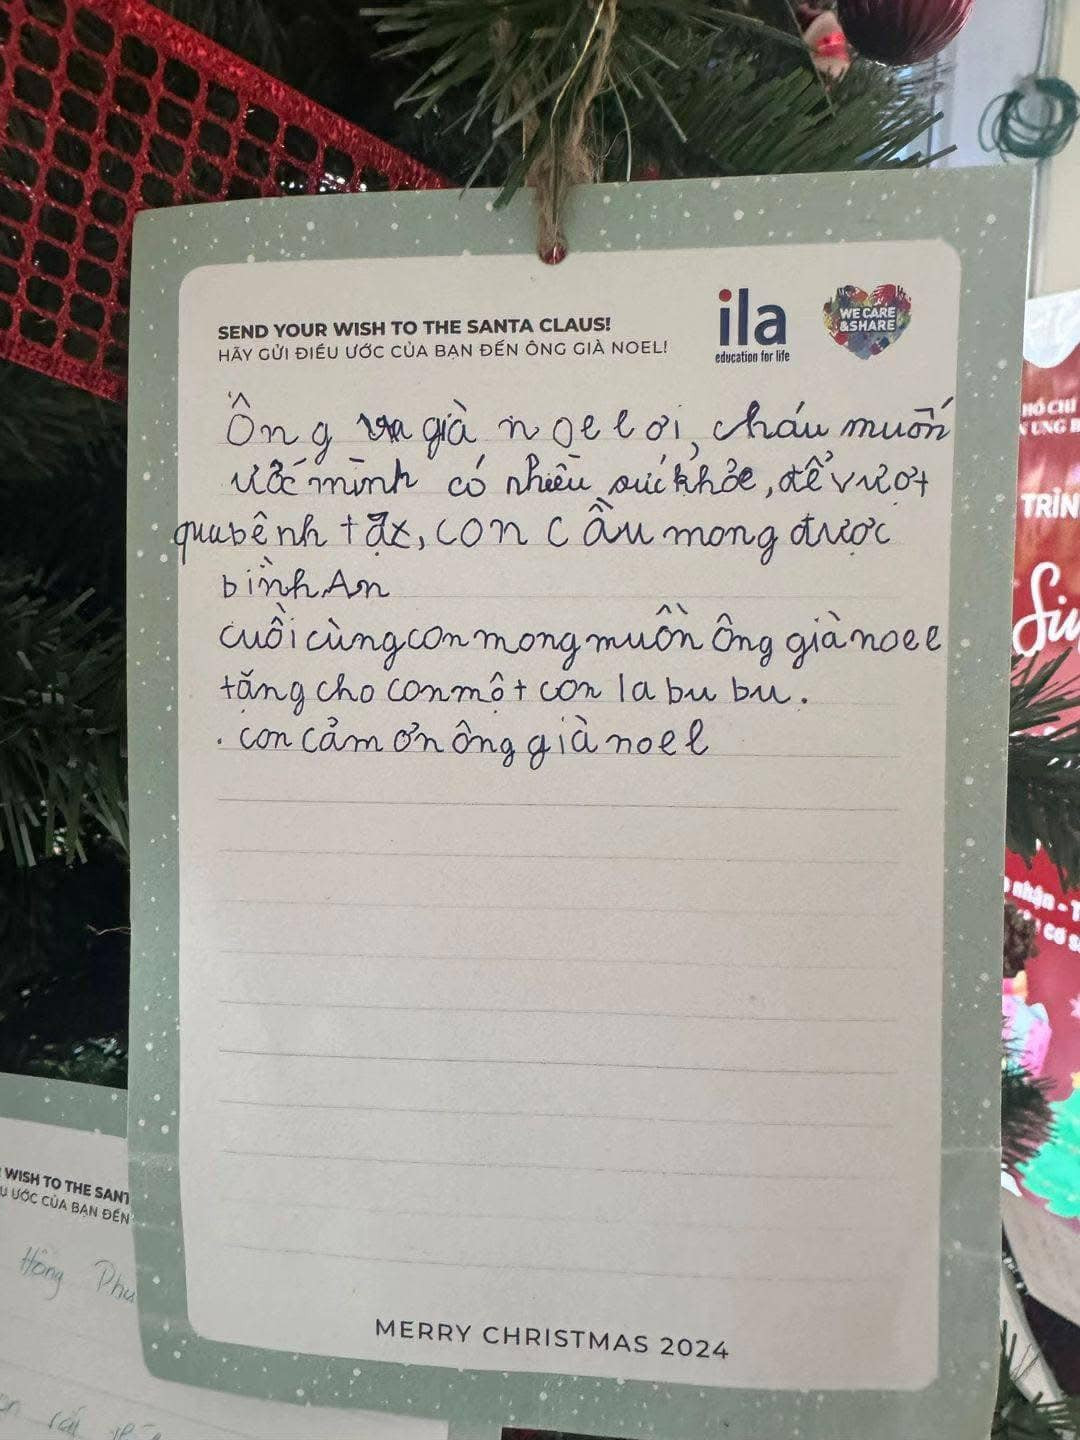 SEND YOUR WISH TO THE SANTA CLAUS!
HÃY GỬI ĐIỀU ƯỚC CỦA BẠN ĐẾN ÔNG GIÀ NOEL!
ila
education for life
WE CARE
&SHARE
Ông già noel ơi, cháu muốn
ước mình có nhiều sức khỏe, để vượt
qua bệnh tật, con cầu mong được
bình An
cuối cùng con mong muốn ông già noel
tặng cho con một con la bu bu.
. con cảm ơn ông già noel
MERRY CHRISTMAS 2024
WISH TO THE SANT
ƯỚC CỦA BẠN ĐẾN
Hồng Phu
HỒ CHÍ
UNG B
TRÌN
nhận - T
CƠ S